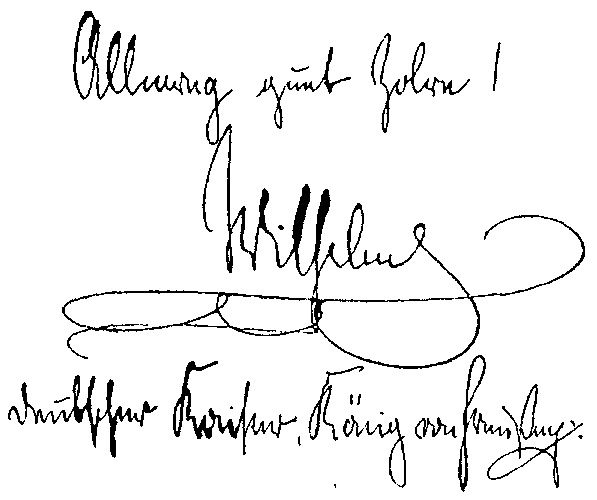 Allweg guet Zolre!
Wilhelm
deutscher Kaiser, König von Preußen.